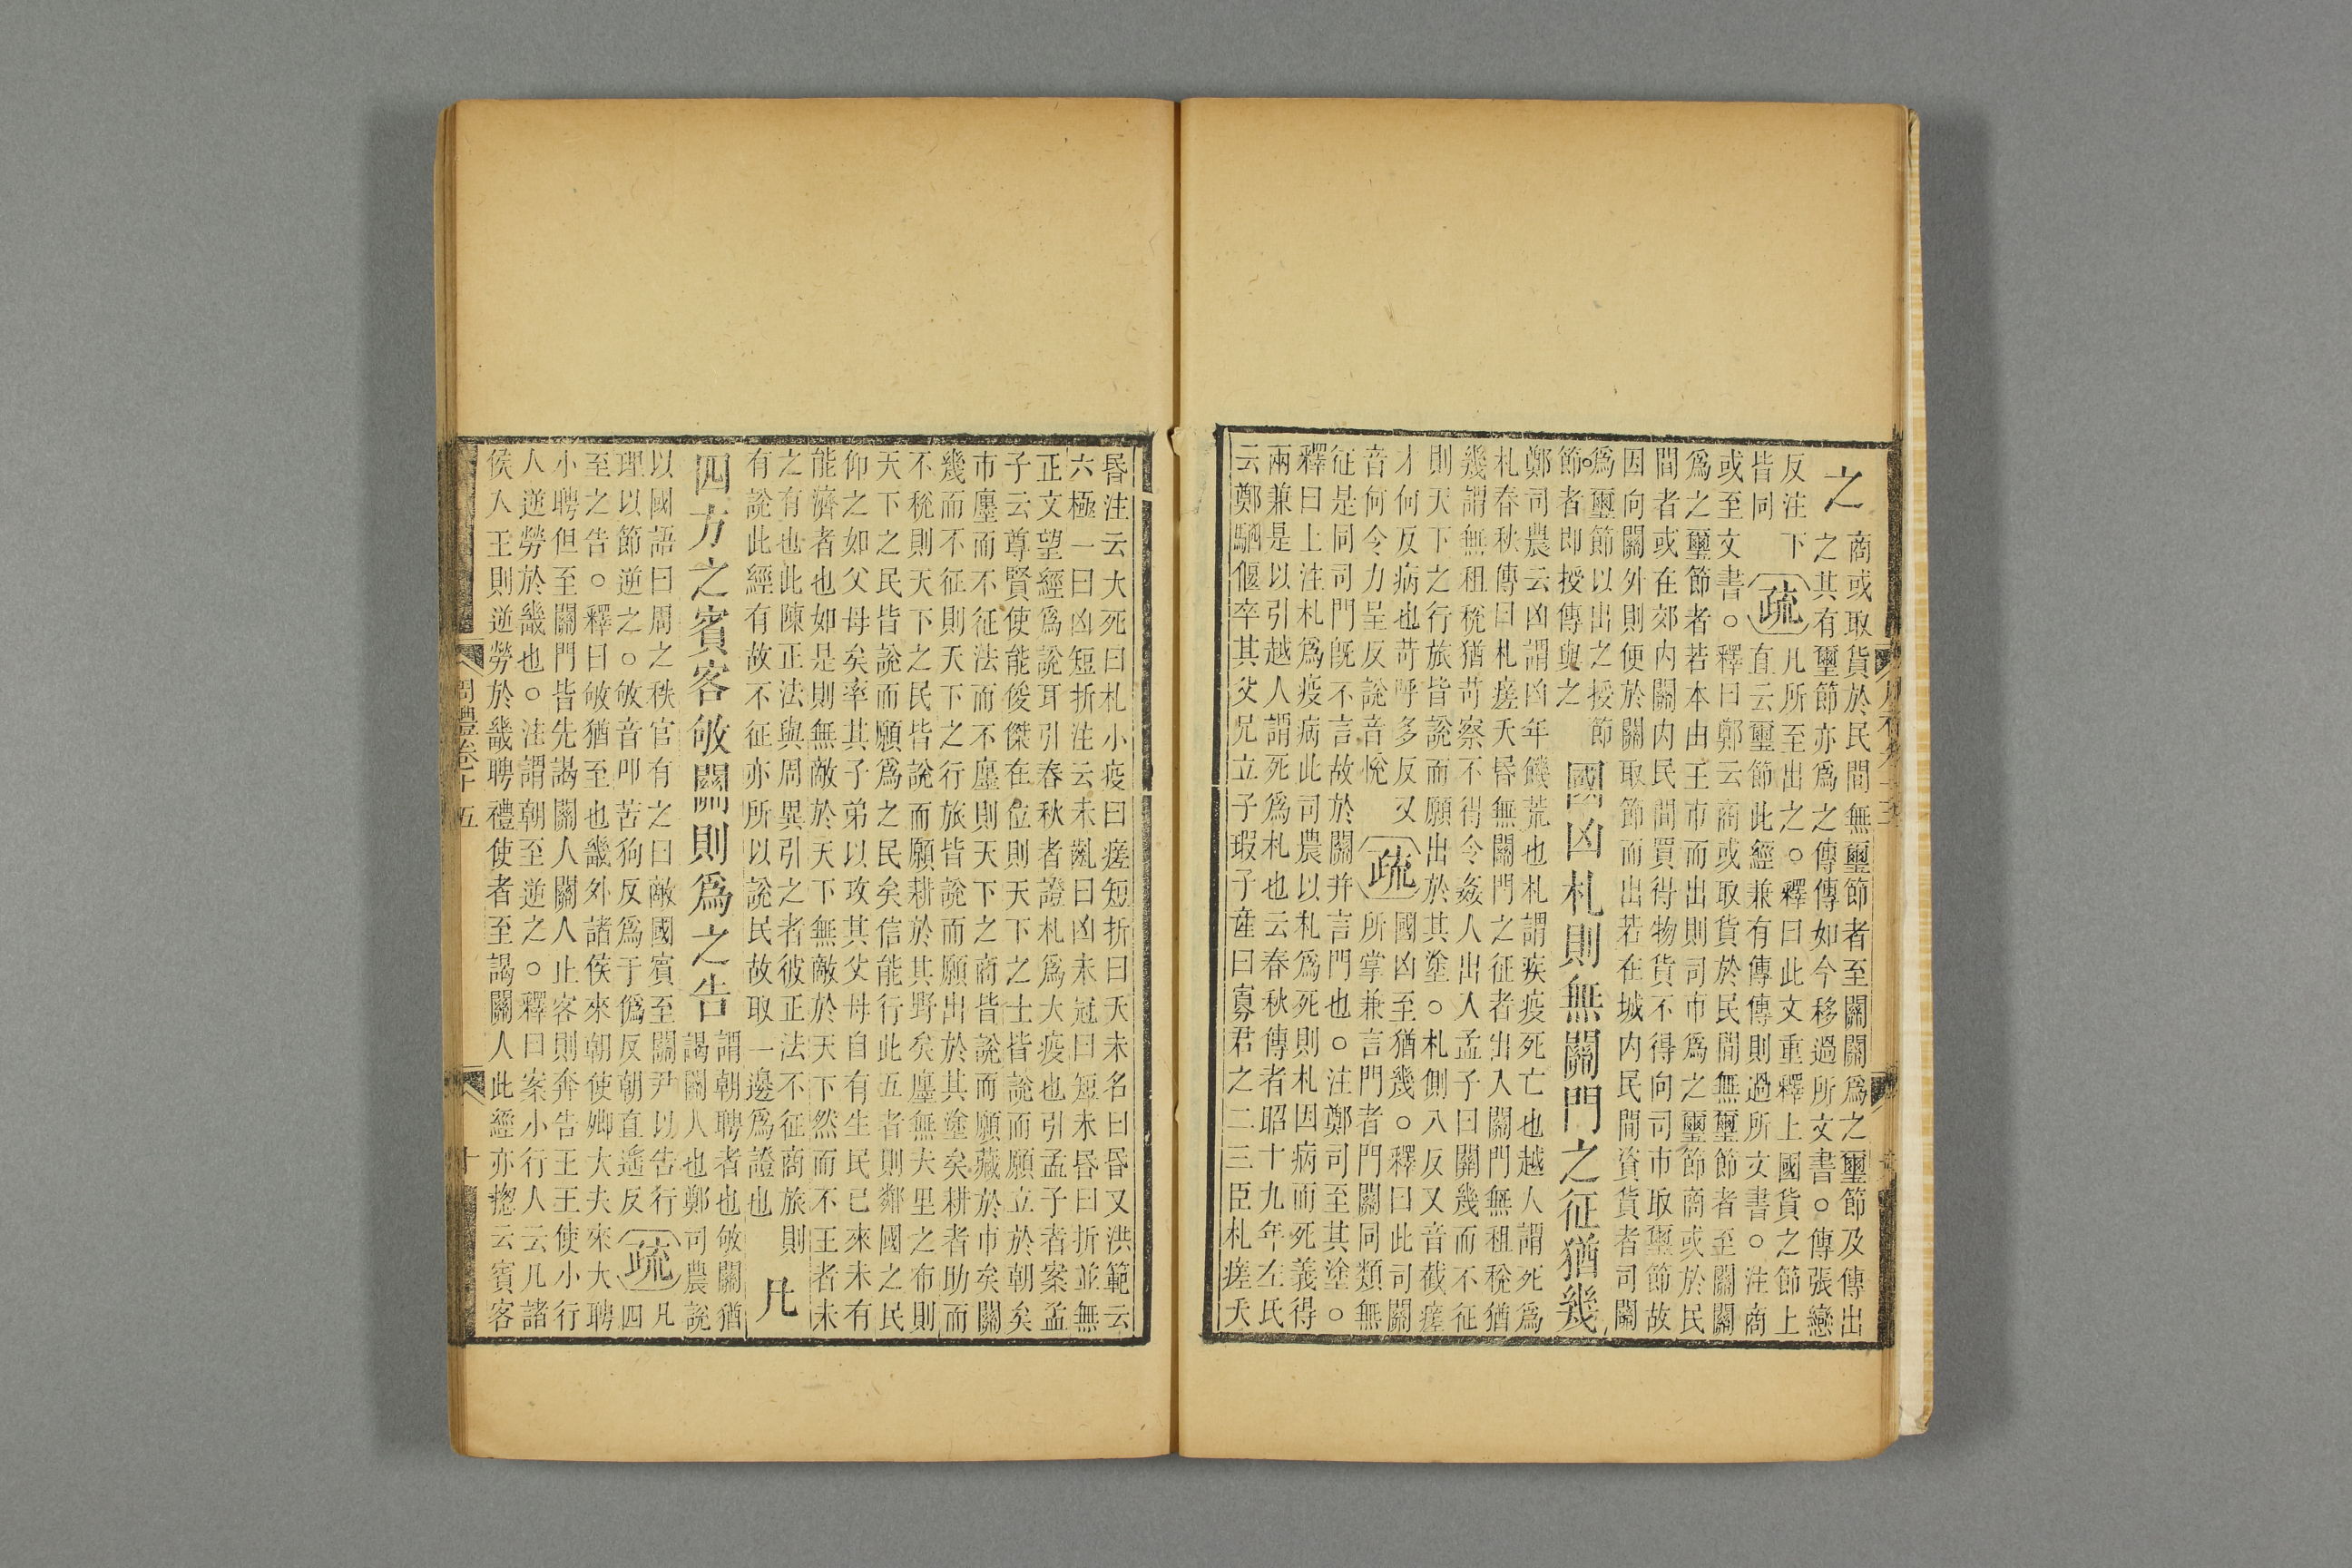 之
商或取貨於民間無璽節者至關關爲之璽節及傳出
之其有璽節亦爲之傳傳如今移過所文書○傳張戀
反注下
皆同
疏
凡所至出之○釋曰此文重釋上國貨之節上
直云璽節此經兼有傳傳則過所文書○注商
或至文書○釋曰鄭云商或取貨於民間無璽節者至關關
爲之璽節者若本由王市而出則司市爲之璽節商或於民
間者或在郊内關内民間買得物貨不得向司市取璽節故
因向關外則便於關取節而出若在城内民間資貨者司關
爲璽節以出之授節
節者即授傳與之
國凶札則無關門之征猶幾
鄭司農云凶謂凶年饑荒也札謂疾疫死亡也越人謂死爲
札春秋傳曰札瘥夭昬無關門之征者出入關門無租稅猶
幾謂無租稅猶苛察不得令姦人出入孟子曰關幾而不征
則天下之行旅皆說而願出於其塗○札側八反又音截瘥
才何反病也苛呼多反又
音何令力呈反說音悅
疏
國凶至猶幾○釋曰此司關
所掌兼言門者門關同類無
征是同司門既不言故於關并言門也○注鄭司至其塗○
釋曰上注札爲疫病此司農以札爲死則札因病而死義得
兩兼是以引越人謂死爲札也云春秋傳者昭十九年左氏
云鄭駟偃卒其父兄立子瑕子產曰寡君之二三臣札瘥夭
昬注云大死曰札小疫曰瘥短折曰夭未名曰昬又洪範云
六極一曰凶短折注云未齓曰凶未冠曰短未昬曰折並無
正文望經爲說耳引春秋者證札爲大疫也引孟子者案孟
子云尊賢使能俊傑在位則天下之士皆說而願立於朝矣
市廛而不征法而不廛則天下之商皆說而願藏於市矣關
幾而不征則天下之行旅皆說而願出於其塗矣耕者助而
不稅則天下之民皆說而願耕於其野矣廛無夫里之布則
天下之民皆說而願爲之民矣信能行此五者則鄰國之民
仰之如父母矣率其子弟以攻其父母自有生民已來未有
能濟者也如是則無敵於天下無敵於天下然而不王者未
之有也此陳正法與周異引之者彼正法不征商旅則
有說此經有故不征亦所以說民故取一邊爲證也
凡
四方之賓客敂關則爲之告
謂朝聘者也敂關猶
謁關人也鄭司農說
以國語曰周之秩官有之曰敵國賓至關尹以告行
理以節逆之○敂音叩苦狗反爲于僞反朝直遙反
疏
凡
四
至之告○釋曰敂猶至也畿外諸侯來朝使卿大夫來大聘
小聘但至關門皆先謁關人關人止客則奔告王王使小行
人逆勞於畿也○注謂朝至逆之○釋曰案小行人云凡諸
侯入王則逆勞於畿聘禮使者至謁關人此經亦揔云賓客
周禮卷十五
十